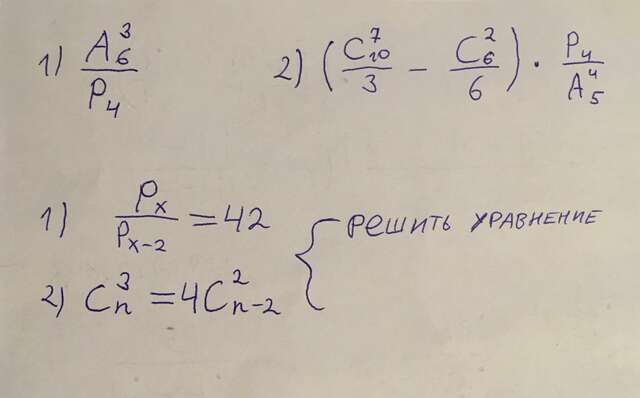 1) A_6^3 / P_4
2) (C_10^7 / 3 − C_6^2 / 6) · P_4 / A_5^4
1) P_x / P_x-2 = 42
2) C_n^3 = 4C_n-2^2
решить уравнение